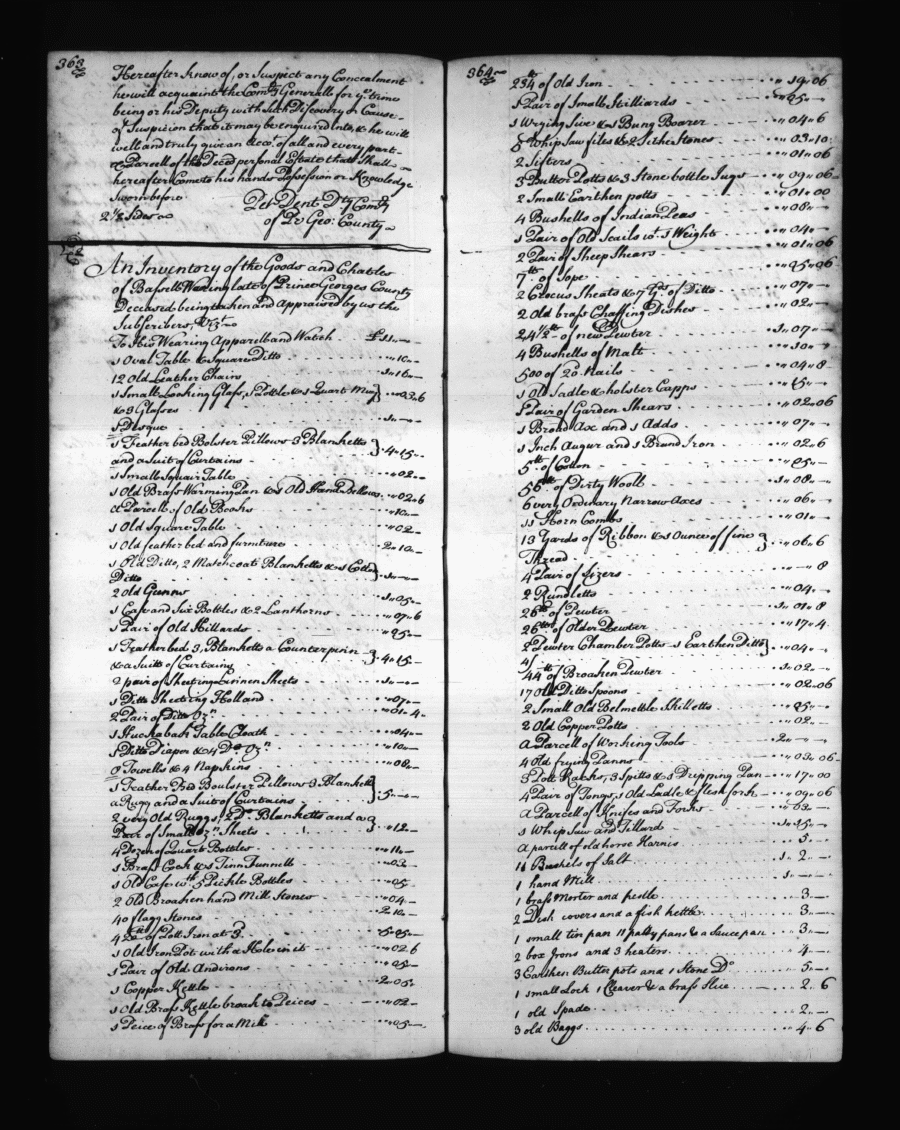 363
Hereafter Know of, or Suspect any Concealment
he will acquaint the Com:ry Generall for ye time
being or his Deputy with such Discovery or Cause
of Suspicion that it may be enquired Into, & he will
well and truly give an Acct. of all and every part
& Parcell of the Deced personal Estate that Shall
hereafter Come to his hands Possession or Knowledge
Sworn before
Pet: Dent Dty Com:ry
2 1/2 Sides
of Pr Geo: County
An Inventory of the Goods and Chatles
of Bassell Waring late of Prince Georges County
Deceased being taken and Appraised by us the
Subscribers, Vizt
To His Wearing Apparell and Watch £11 " — "—
1 Oval Table & Square Ditto " " 10 " —
12 Old Leather Chairs 1 " 16 " —
1 Small Looking Glass, 1 Pottle & 1 Quart Mug } " " 03 " 6
& 3 Glasses
1 Desque 1 " — " —
1 Feather bed Bolster Pillows 3 Blanketts } 4 " 15 " —
and a Suit of Curtains
1 Small Squair Table " " 02 " —
1 Old Brass Warming Pan & 1 Old Hand Bellows " " 02 " 6
A Parcell of Old Books " " 10 " —
1 Old Square Table " " 02 " —
1 Old feather bed and furniture 2 " 10 " —
1 Old Ditto, 2 Matchcoat Blanketts & 1 Cotton } 1 " — " —
Ditto
2 Old Gunns 1 " 05 " —
1 Case and Six Bottles & 2 Lanthorns " " 07 " 6
1 Pair of Old Stillards " " 05 " —
1 Feather bed 3, Blanketts a Counterpain } 4 " 15 " —
& a Suitt of Curtains
2 pair of Sheeting Linnen Sheets 1 " — " —
1 Ditto Sheeting Holland " " 07 " —
2 Pair of Ditto Ozn " " 01 " 4
1 Huckaback Table Cloath " " 04 " —
1 Ditto Diaper & 4 Do Ozn " " 10 " —
8 Towells & 4 Napkins " " 08 " —
1 Feather Bed Boulster Pillows 3 Blanketts } 5 " — " —
a Rugg and a Suit of Curtains
2 very Old Ruggs 2 Do Blanketts and a } " " 12 " —
Pair of Small Ozn Sheets
4 Dozen of Quart Bottles " " 11 " —
1 Brass Cock & 1 Tinn Funnell " " 03 " —
1 Old Case wth 5 Pickle Bottles " " 05 " —
2 Old Broaken hand Mill Stones " " 04 " —
40 flagg Stones 2 " 10 " —
of Pott Iron at 3
1 Old Iron Pot with a Hole in it " " 02 " 6
1 Pair of Old Andirons " " 05 " —
1 Copper Kettle 2 " 05 " —
1 Old Brass Kettle broak to Peices " " 02 " —
1 Peice of Brass for a Mill " " 05 " —
364
254 lb of Old Iron " " 19 " 06
1 Pair of Small Stilliards " " 05 " —
1 Wrying Sive & 1 Bung Boarer " " 04 " 6
8 Whip Saw files & 2 Sithe Stones " " 03 " 10
2 Sifters " " 01 " 06
3 Butter Potts & 3 Stone bottle Jugs " " 09 " 06
2 Small Earthen potts " " 01 " 00
4 Bushells of Indian Peas " " 08 " —
1 Pair of Old Scails wt. 1 Weight " " 04 " —
2 Pair of Sheep Shears " " 01 " 06
7 lb. of Sope
2 Crocus Sheats & 7 Yds. of Ditto " " 07 " —
2 Old brass Chaffing Dishes " " 02 " —
24 1/2 lb of new Pewter 1 " 07 " —
4 Bushells of Malt " " 10 " —
500 of 20d. Nails " " 04 " 8
1 Old Sadle & holster Capps " " 15 " —
1 Pair of Garden Shears " " 02 " 06
1 Broad Ax and 1 Adds " " 07 " —
1 Inch Augur and 1 Brand Iron " " 02 " 6
5 lb. of Cotton " " 05 " —
56 lb of Dirty Wooll 1 " 08 " —
6 very Ordinary Narrow Axes " " 06 " —
11 Horn Combs " " 01 " —
13 Yards of Ribbon & 1 Ounce of fine } " " 06 " 6
Thread
4 Pair of Sizers " " — " 8
2 Rundletts " " 04 " —
26 lb of Pewter 1 " 01 " 8
26 lb. of Older Pewter " " 17 " 4
2 Pewter Chamber Potts 1 Earthen Ditto } " " 04 " —
44 lb of Broaken Pewter 1 " 02 " —
17 Old Ditto Spoons " " 02 " 06
2 Small Old Belmettle Skilletts " " 05 " —
2 Old Copper Potts " " 02 " —
A Parcell of Working Tools 2 " — " —
4 Old frying Panns " " 03 " 06
3 Pott Racks, 3 Spitts & 1 Dripping Pan " " 17 " 00
4 Pair of Tongs, 1 Old Ladle & flesh fork " " 09 " 06
A Parcell of Knifes and Forks " " 03 " —
1 Whip Saw and Tillard 1 " 15 " —
A parcell of old horse Harnis 5 " —
16 Bushels of Salt 1 " 2 " —
1 hand Mill 1 " — " —
1 brass Morter and pestle 3 " —
2 Dish covers and a fish kettle 3 " —
1 small tin pan 11 patty pans & a Sauce pan 3 " —
2 box Irons and 3 heaters 4 " —
3 Earthen Butter pots and 1 Stone Do 5 " —
1 small Lock 1 Cleaver & a brass Slice 2 " 6
1 old Spade 2 " —
3 old Baggs 4 " 6